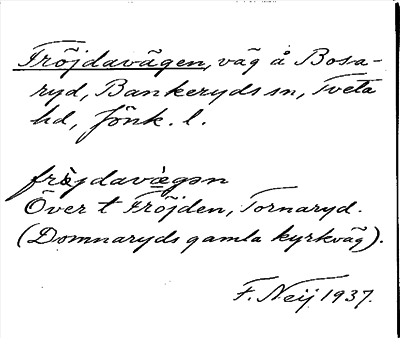 Fröjdavägen, väg å Bosa-
ryd, Bankeryds sn, Tveta
hd, Jönk. l.
fròjdavæ̀gən
Över t Fröjden, Tornaryd.
(Domnaryds gamla kyrkväg).
F. Neij 1937.